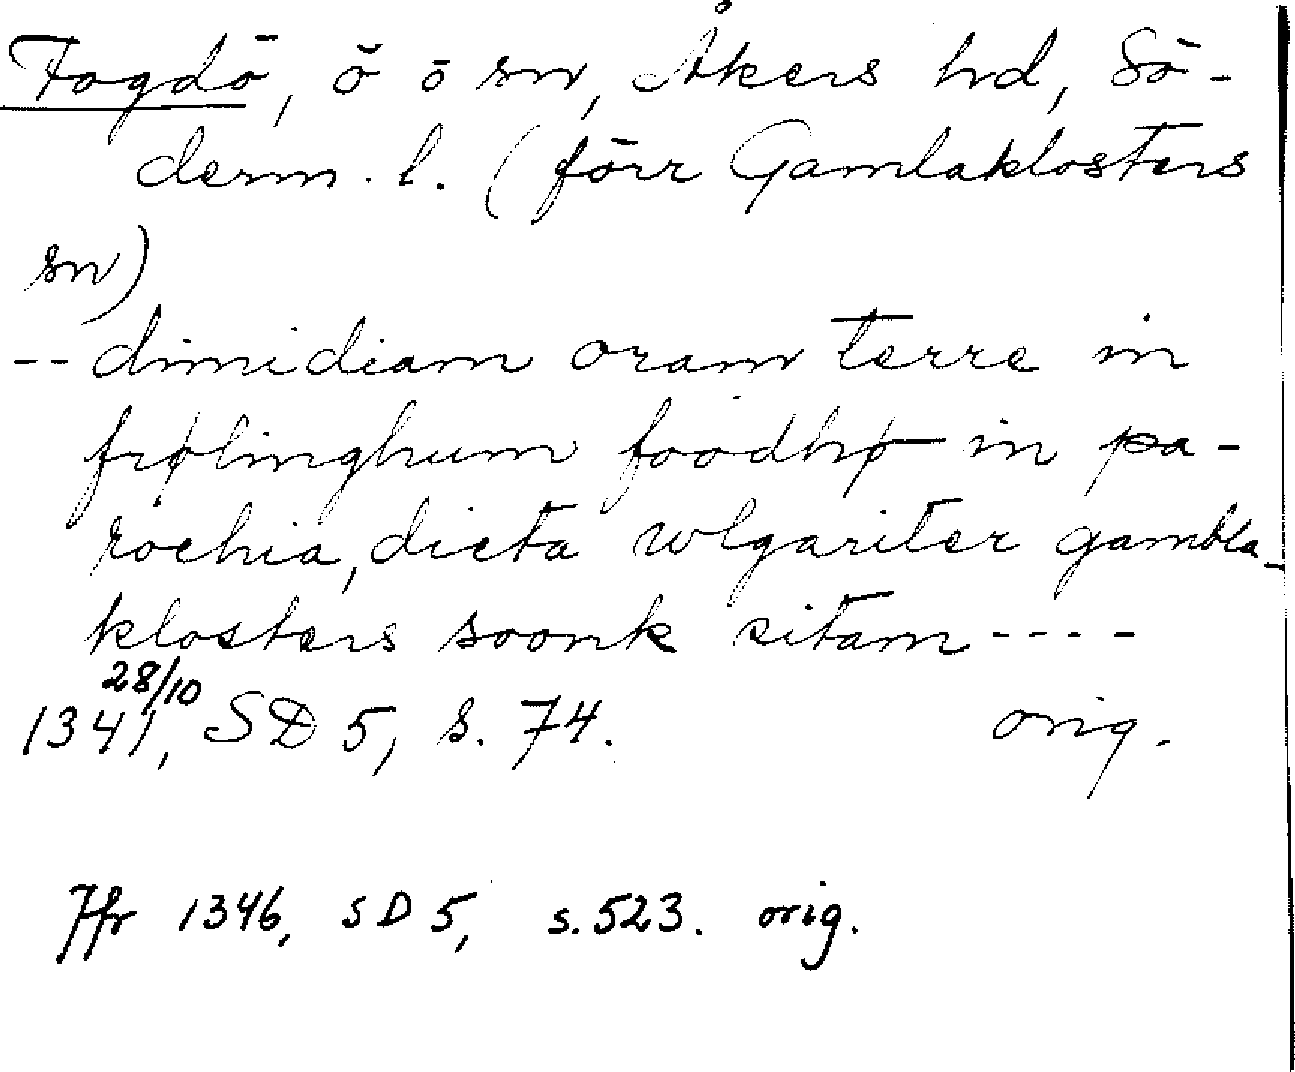 Fogdö, ö o sn, Åkers hd, Sö-
derm. l. (förr Gamlaklosters
sn)
-- dimidiam oram terre in
frølinghum foodhø in pa-
rochia, dicta wlgariter gambla-
klosters soonk sitam ----
1341 28/10, SD 5, s. 74. orig.
Jfr 1346, SD 5, s. 523. orig.